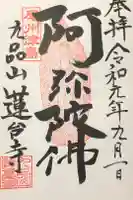 奉拝 令和元年九月一日
阿弥陀佛
九品山 蓮台寺